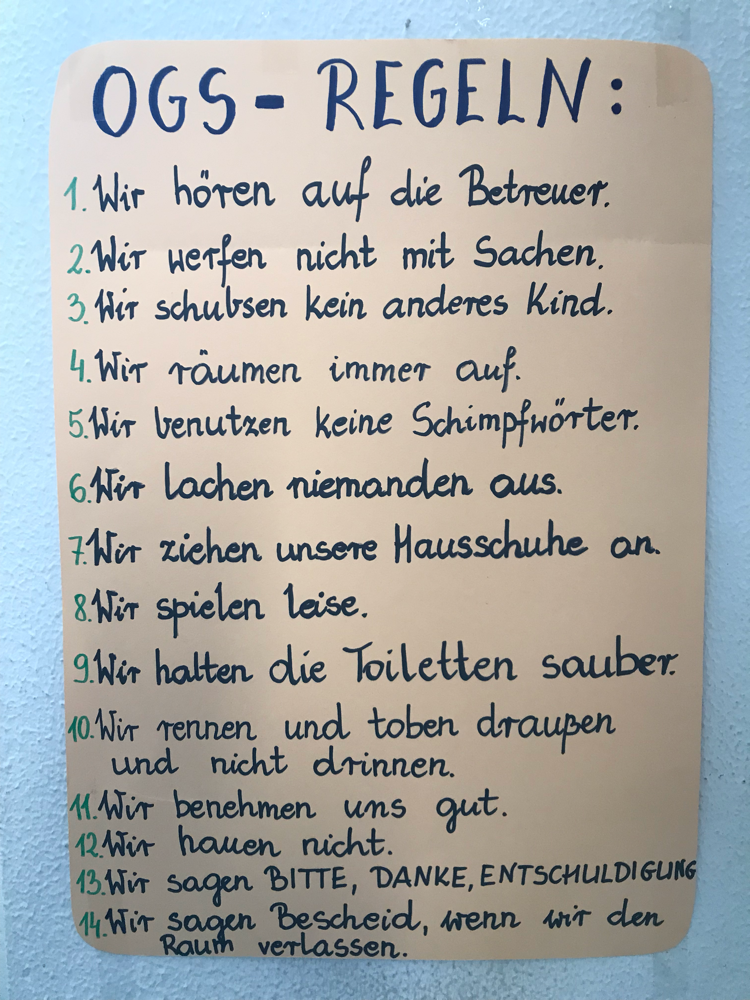 OGS - REGELN:
1. Wir hören auf die Betreuer.
2. Wir werfen nicht mit Sachen.
3. Wir schubsen kein anderes Kind.
4. Wir räumen immer auf.
5. Wir benutzen keine Schimpfwörter.
6. Wir lachen niemanden aus.
7. Wir ziehen unsere Hausschuhe an.
8. Wir spielen leise.
9. Wir halten die Toiletten sauber.
10. Wir rennen und toben draußen
und nicht drinnen.
11. Wir benehmen uns gut.
12. Wir hauen nicht.
13. Wir sagen BITTE, DANKE, ENTSCHULDIGUNG
14. Wir sagen Bescheid, wenn wir den
Raum verlassen.